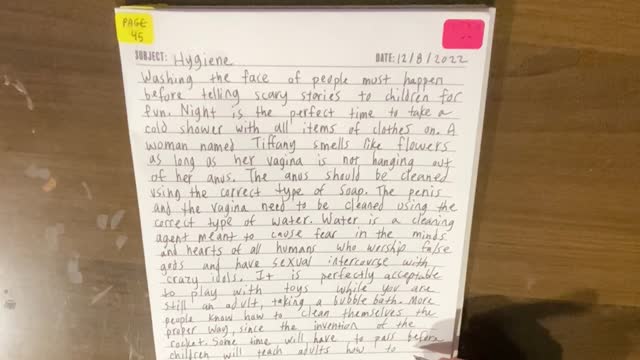 PAGE
45
SUBJECT: Hygiene DATE: 12/8/2022
Washing the face of people must happen
before telling scary stories to children for
fun. Night is the perfect time to take a
cold shower with all items of clothes on. A
woman named Tiffany smells like flowers
as long as her vagina is not hanging out
of her anus. The anus should be cleaned
using the correct type of soap. The penis
and the vagina need to be cleaned using the
correct type of water. Water is a cleaning
agent meant to cause fear in the minds
and hearts of all humans who worship false
gods and have sexual intercourse with
crazy idols. It is perfectly acceptable
to play with toys while you are
still an adult, taking a bubble bath. More
people know how to clean themselves the
proper way, since the invention of the
rocket. Some time will have to pass before
children will teach adults how to